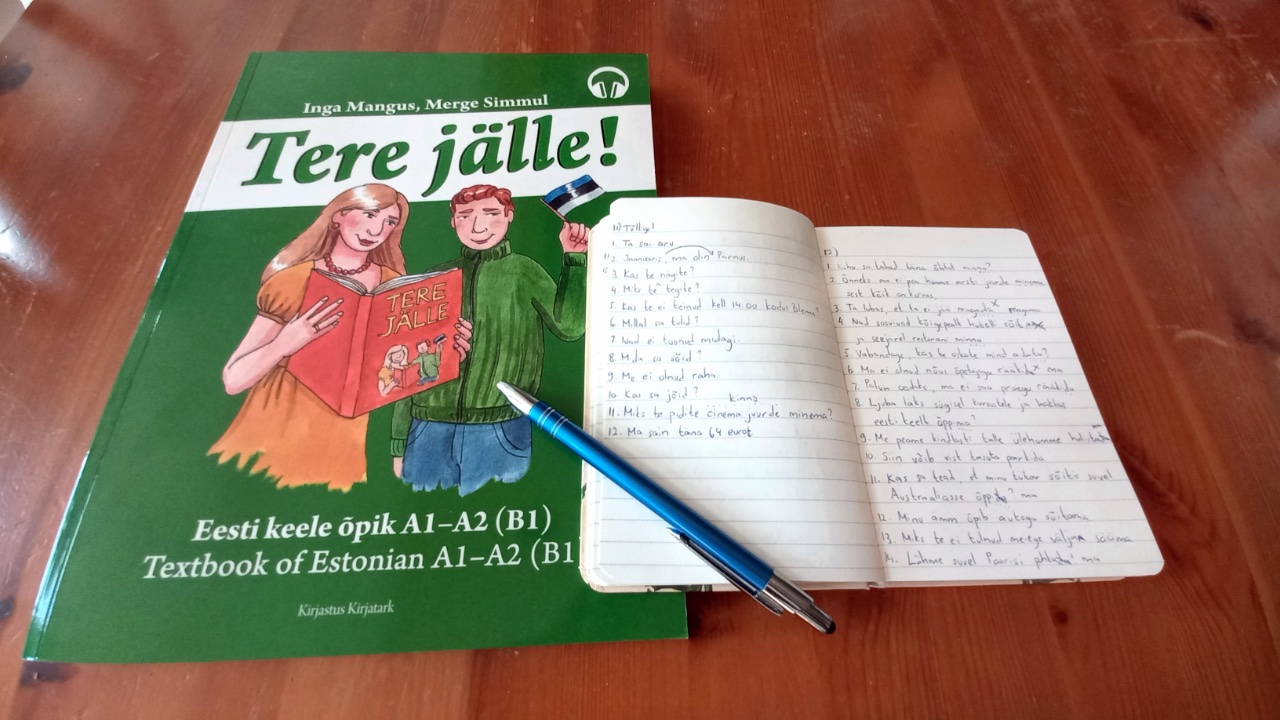 Inga Mangus, Merge Simmul
Tere jälle!
TERE
JÄLLE
Eesti keele õpik A1–A2 (B1)
Textbook of Estonian A1–A2 (B1
Kirjastus Kirjatark
11) Tõlkige!
1. Ta sai aru.
2. Jaanuaris, ma olin Pärnus.
3. Kas te nägite?
4. Miks te tegite?
5. Kas te ei teinud kell 14:00 kodus olema?
6. Millal sa tulid?
7. Nad ei toonud midagi.
8. Mida sa sõid?
9. Me ei olnud raha
10. Kas sa jõid?
kinno
11. Miks te pidite cinema juurde minema?
12. Ma sain täna 64 eurot
12)
1. Kuhu sa tahad täna õhtul minna?
2. Õnneks ma ei pea homme arsti juurde minema
sest kõik on korras.
3. Ta lubas, et ta ei jää magada magama
4. Nad soovivad kõigepealt hotelli
ja seejärel restorani minna
5. Vabandage, kas te oskate mind aidata?
6. Ma ei olnud nõus õpetajaga ma
7. Palun ma ei saa praegu rääkida
8. Ljuba läks sügisel kursustele ja hakkas
eesti keelt õppima?
9. Me peame kindlasti talle ülehomme
10. Siin võib vist tasuta parkida
11. Kas sa tead, et minu tütar sõitis suvel
Austraaliasse ma
12. Minu ämm õpib autoga sõitama
13. Miks te ei tulnud meiega välja sööma
14. Lähme suvel Pariisi ma